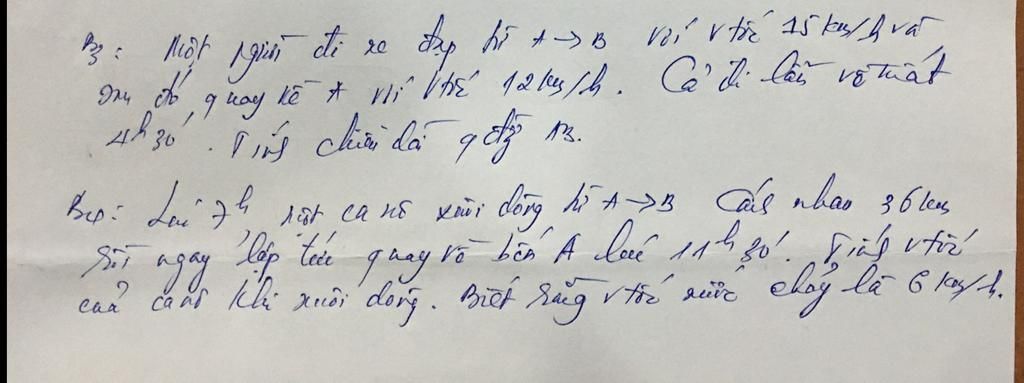 B3: Một người đi xe đạp từ A → B với vtốc 15 km/h và
sau đó quay về A với vtốc 12 km/h. Cả đi lẫn về mất
4h30'. Tính chiều dài qđg AB.
B4: Lúc 7h một ca nô xuôi dòng từ A → B cách nhau 36 km
rồi ngay lập tức quay về bến A lúc 11h30'. Tính vtốc
của canô khi xuôi dòng. Biết rằng vtốc nước chảy là 6 km/h.